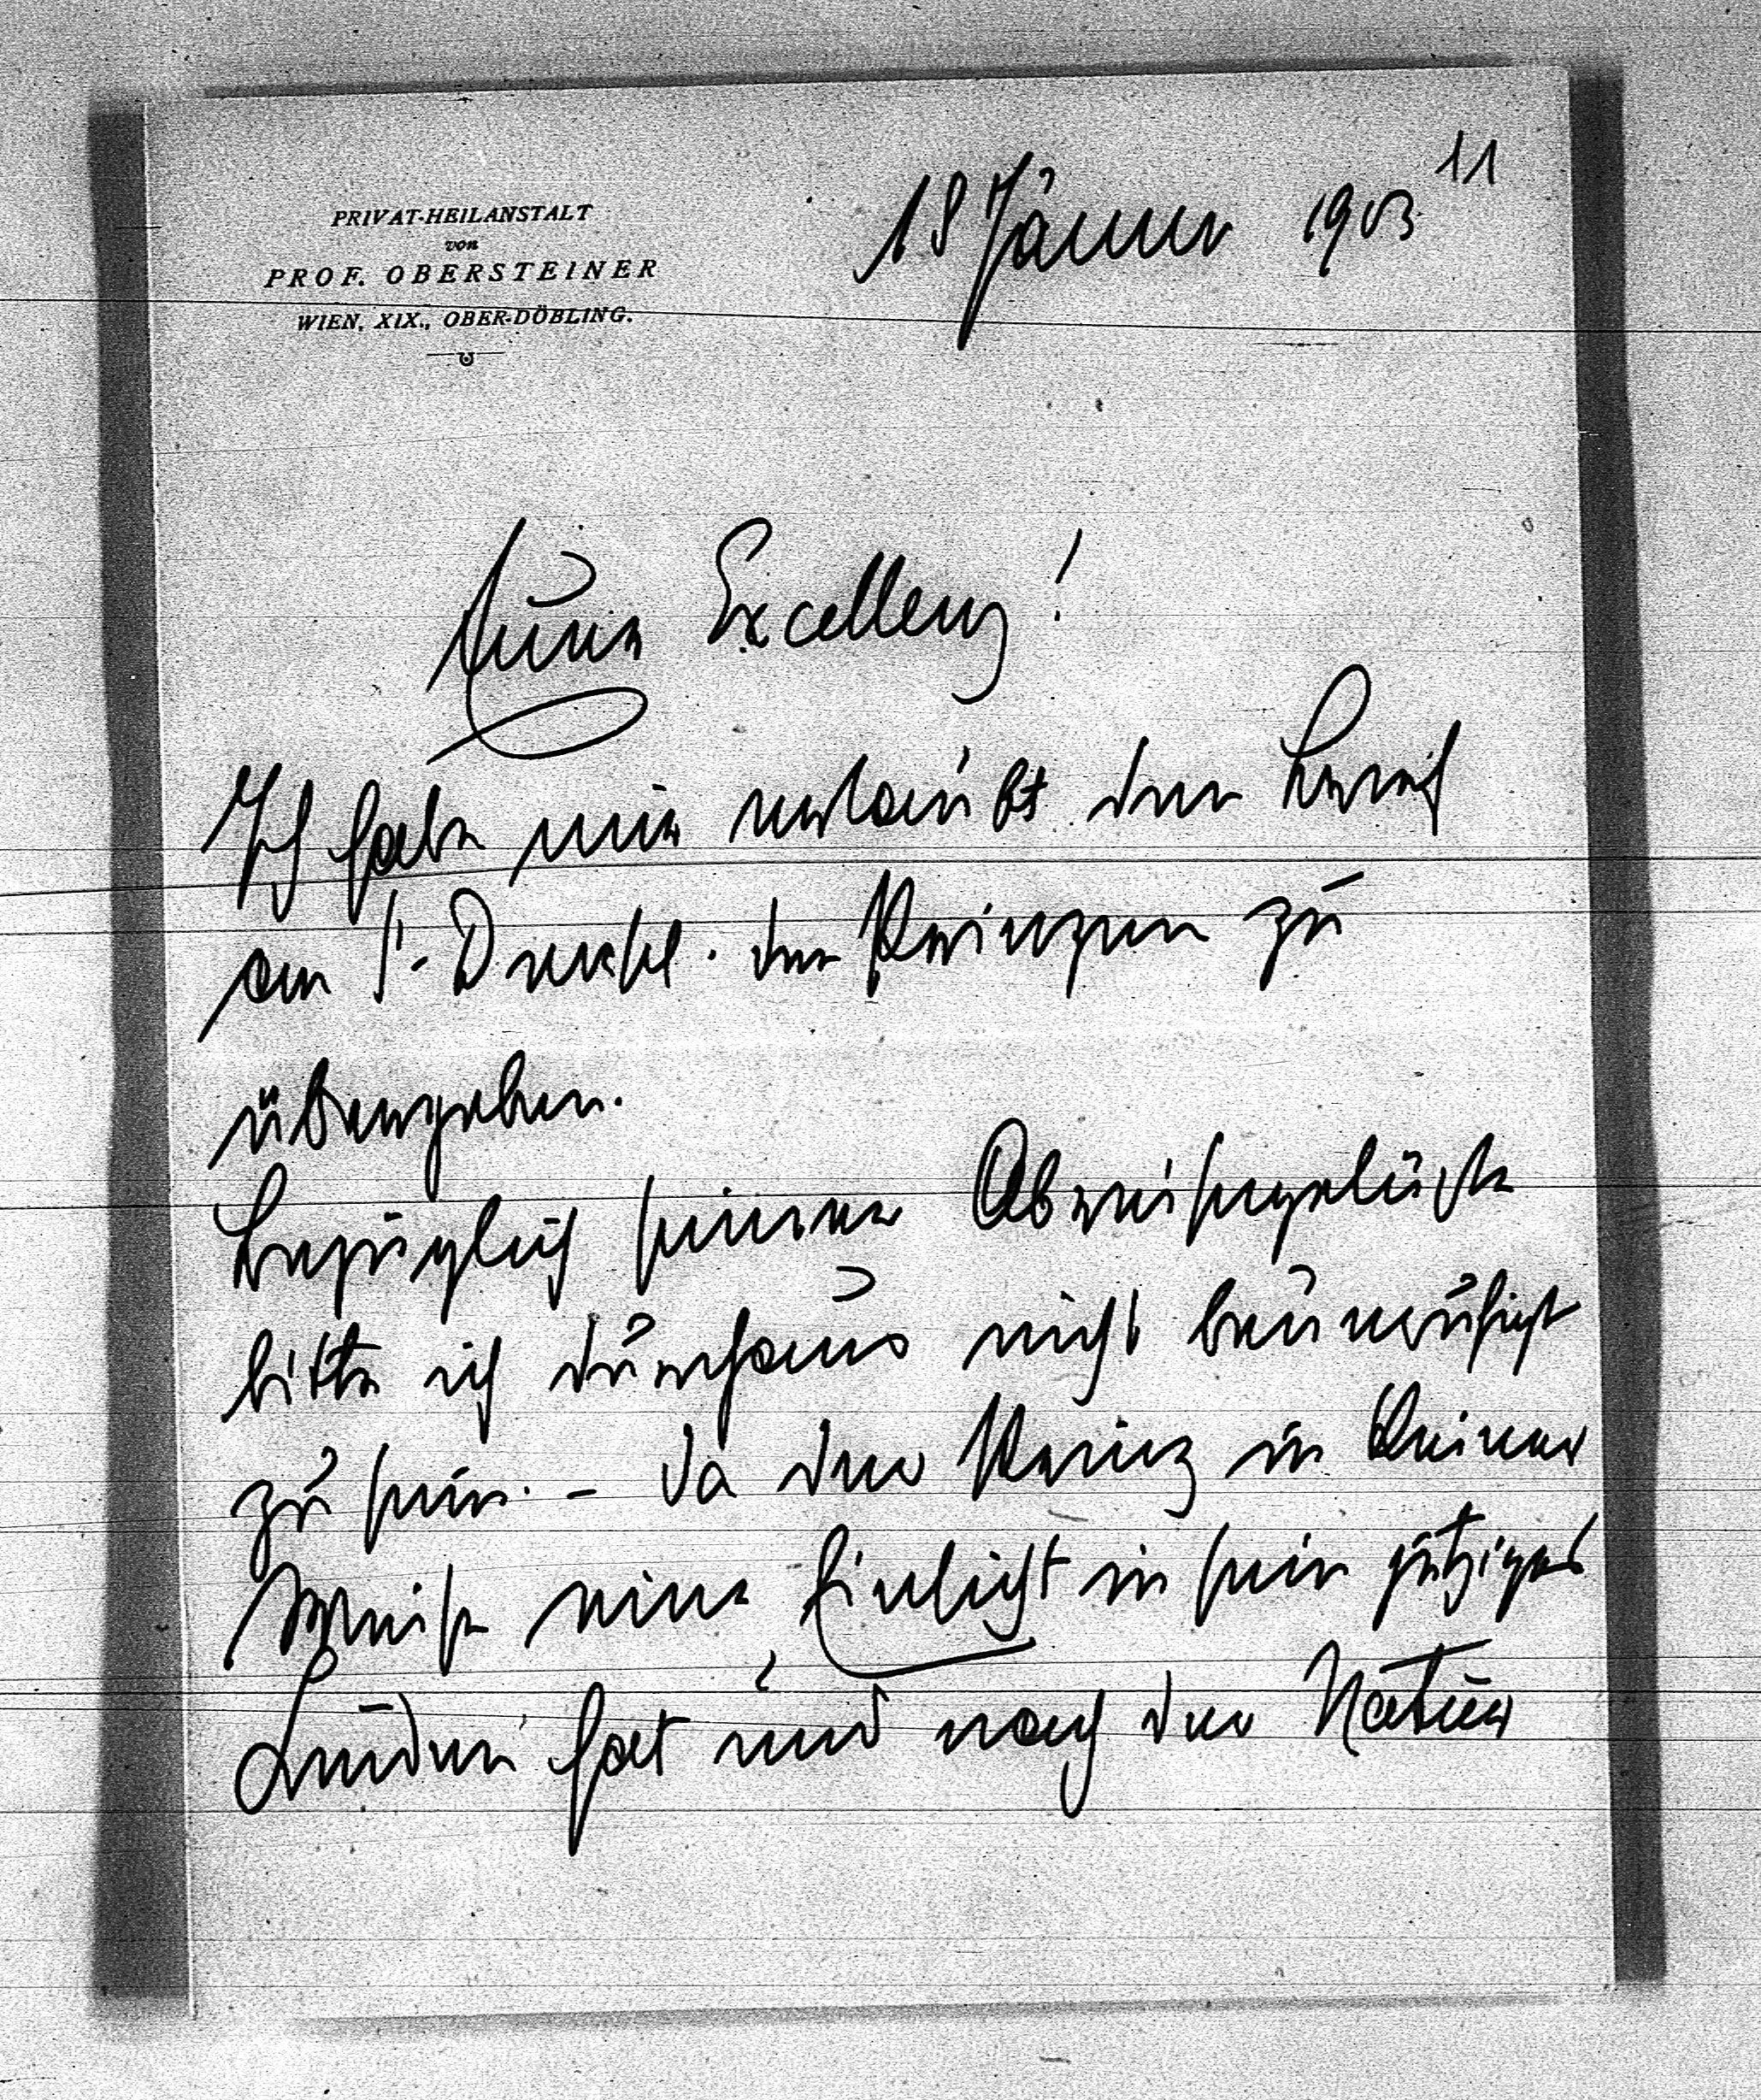 11
18 Jänner 1903
PRIVAT-HEILANSTALT
von
PROF. OBERSTEINER
WIEN, XIX., OBER-DÖBLING.
Eure Excellenz!
Ich habe mir erlaubt den Brief
an S. Durchl. den Prinzen zu
übergeben.
Bezüglich seiner Abreisegelüste
bitte ich durchaus nicht beunruhigt
zu sein. – Da der Prinz in keiner
Weise eine Einsicht in sein jetziges
Leiden hat und nach der Natur